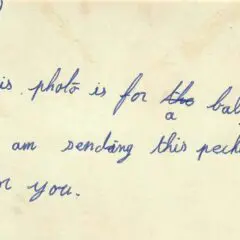 is photo is for ~~the~~ a
am sending this
you.